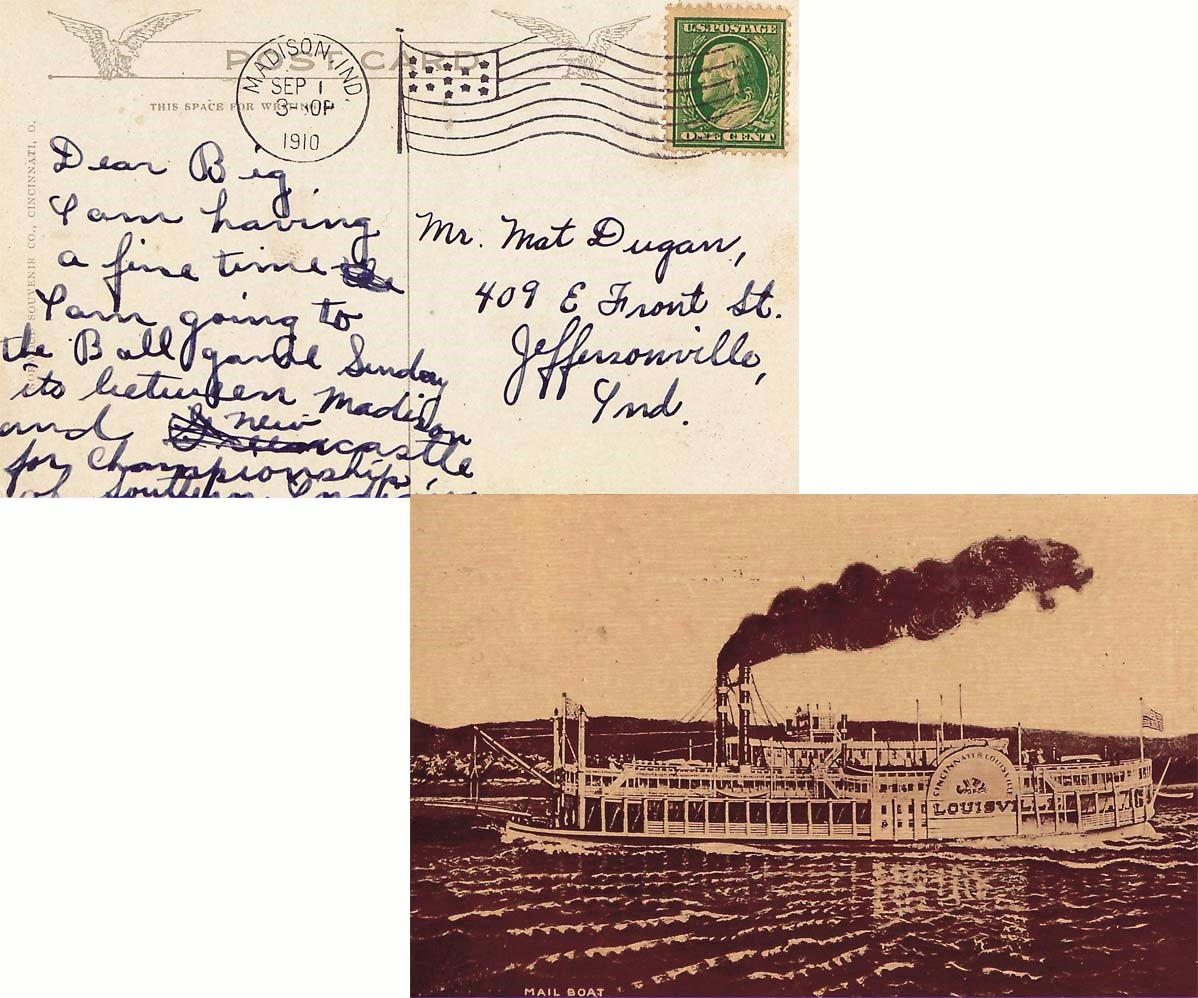 POST CARD
THIS SPACE FOR WRITING
MADISON, IND.
SEP 1
3-30P
1910
U.S. POSTAGE
ONE CENT
SOUVENIR CO., CINCINNATI, O.
Dear Big
I am having
a fine time
I am going to
the Ball game Sunday
its between Madison
and new castle
for Championship
of Southern Indiana
Mr. Mat Dugan,
409 E Front St.
Jeffersonville,
Ind.
CINCINNATI & LOUISVILLE
LOUISVILLE
MAIL BOAT